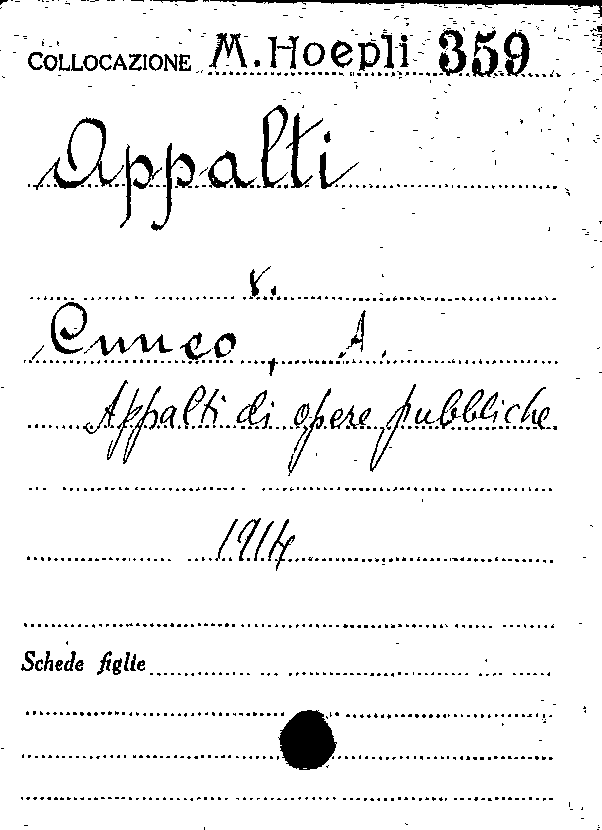 COLLOCAZIONE M. Hoepli 359
Appalti
v.
Cuneo, A.
Appalti di opere pubbliche
1914
Schede figlie